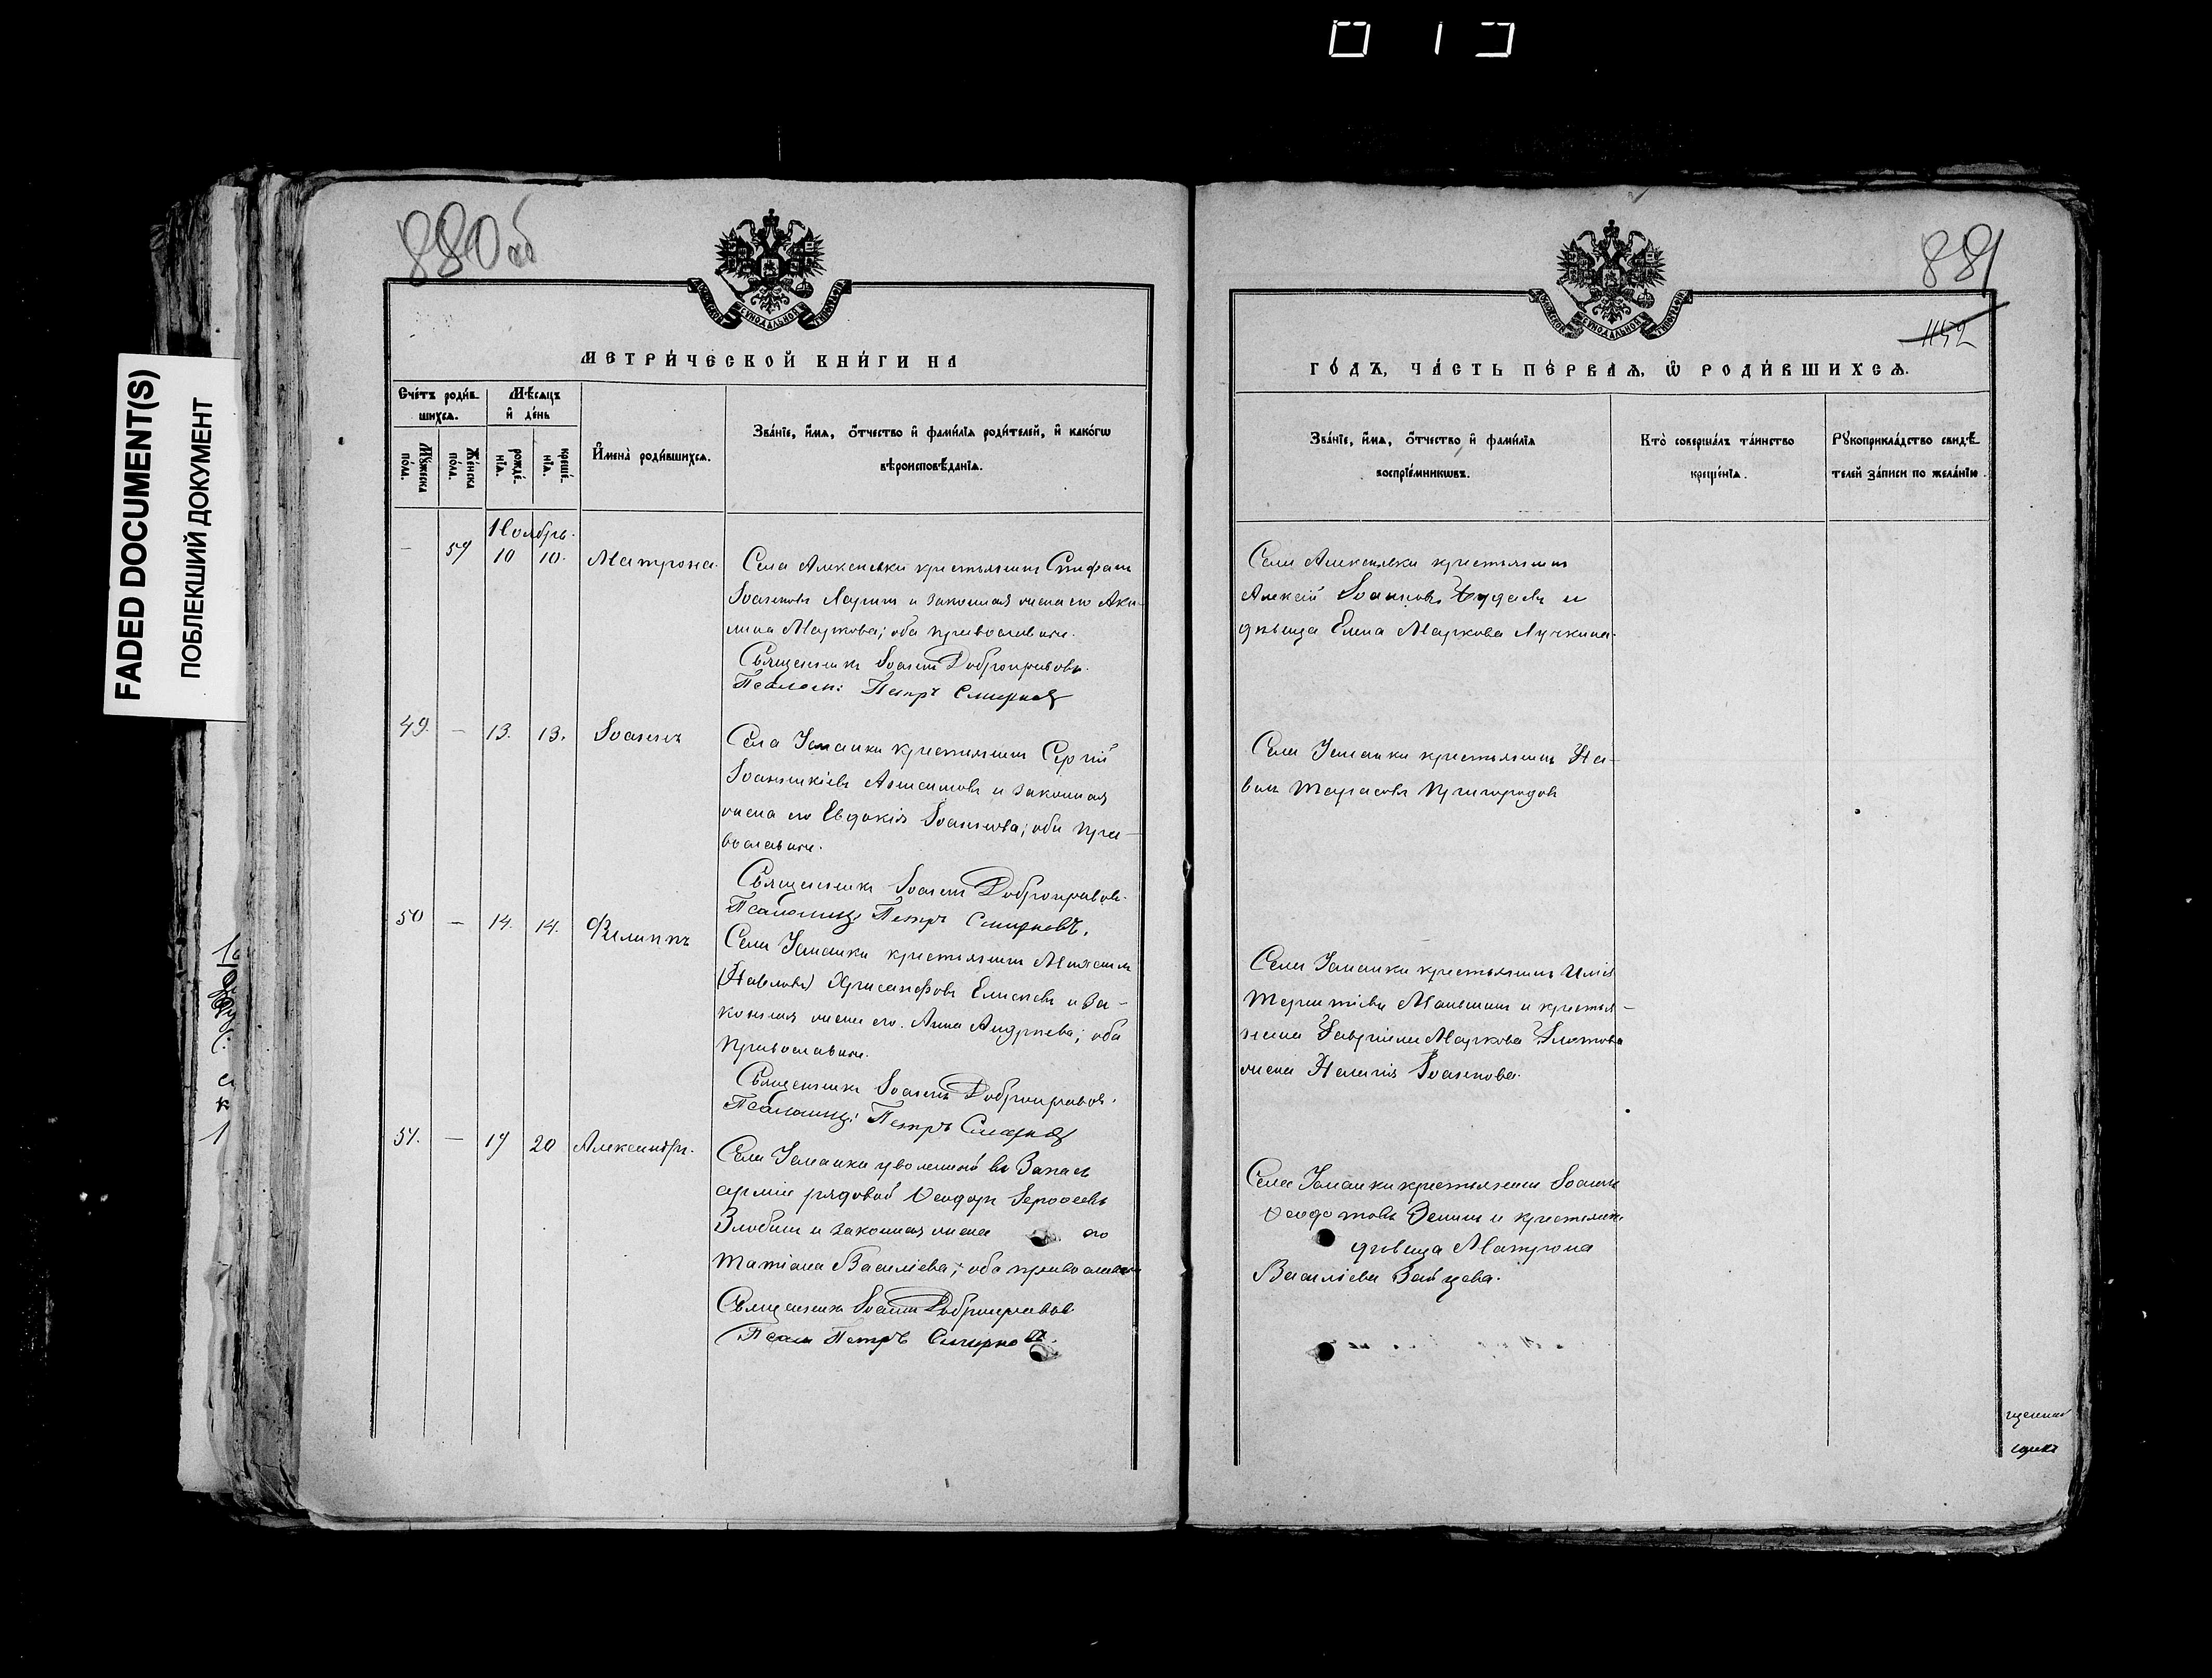 FADED DOCUMENT(S)
ПОБЛЕКШИЙ ДОКУМЕНТ
880 об
МЕТРИ́ЧЕСКОЙ КНИ́ГИ НА
Сче́тъ роди́в-
шихсѧ.
Мѣ́сѧцъ
и҆ де́нь
Мꙋ́жеска по́ла.
Же́нска по́ла.
рожде́-
нїѧ.
креще́-
нїѧ.
И҆мена̀ роди́вшихсѧ.
Зва́нїе, и҆́мѧ, ѻ҆́тчество и҆ фами́лїѧ роди́телей, и҆ како́гѡ
вѣроисповѣ́данїѧ.
Ноябрь.
— 57 10 10. Матрона.
Села Алексѣевки крестьянинъ Стефанъ
Іоанновъ Ларинъ и законная жена его Аки-
лина Маркова; оба православные.
Священникъ Іоаннъ Добронравовъ.
Псалом: Петръ Смирновъ
49. — 13. 13. Іоаннъ
Села Усманки крестьянинъ Сергій
Іоанникіевъ Анисимовъ и законная
жена его Евдокія Іоаннова; оба пра-
вославные.
Священникъ Іоаннъ Добронравовъ.
Псаломщ: Петръ Смирновъ.
50 — 14. 14. Филиппъ
Села Усманки крестьянинъ
(Павловъ) Хрисанфовъ Елисеевъ и за-
конная жена его Анна Андреева; оба
православные.
Священникъ Іоаннъ Добронравовъ.
Псаломщ: Петръ Смирновъ
51. — 17 20 Александръ.
Села Усманки уволенный въ запасъ
арміи рядовой Ѳеодоръ
Злобинъ и законная жена его
Татіана Василіева; оба православные
Священникъ Іоаннъ Добронравовъ
Псалом Петръ Смирновъ.
881
1152
ГО́ДЪ, ЧА́СТЬ ПЕ́РВАѦ, Ѡ҆ РОДИ́ВШИХСѦ.
Зва́нїе, и҆́мѧ, ѻ҆́тчество и҆ фами́лїѧ
воспрїе́мникѡвъ.
Кто̀ соверша́лъ та́инство
креще́нїѧ.
Рꙋкоприкла́дство свидѣ́-
телей за́писи по жела́нїю.
Села Алексѣевки крестьянинъ
Алексій Іоанновъ Чудаевъ и
дѣвица Елена Маркова Лучкина.
Села Усманки крестьянинъ Па-
велъ Тарасовъ Пригородовъ
Села Усманки крестьянинъ Илія
Терентіевъ Маньшинъ и крестья-
нина Гавріила Маркова
жена Пелагія Іоаннова.
Села Усманки крестьянинъ Іоаннъ
Ѳеодотовъ Зенинъ и крестьянск.
дѣвица Матрона
Василіева Зайцева.